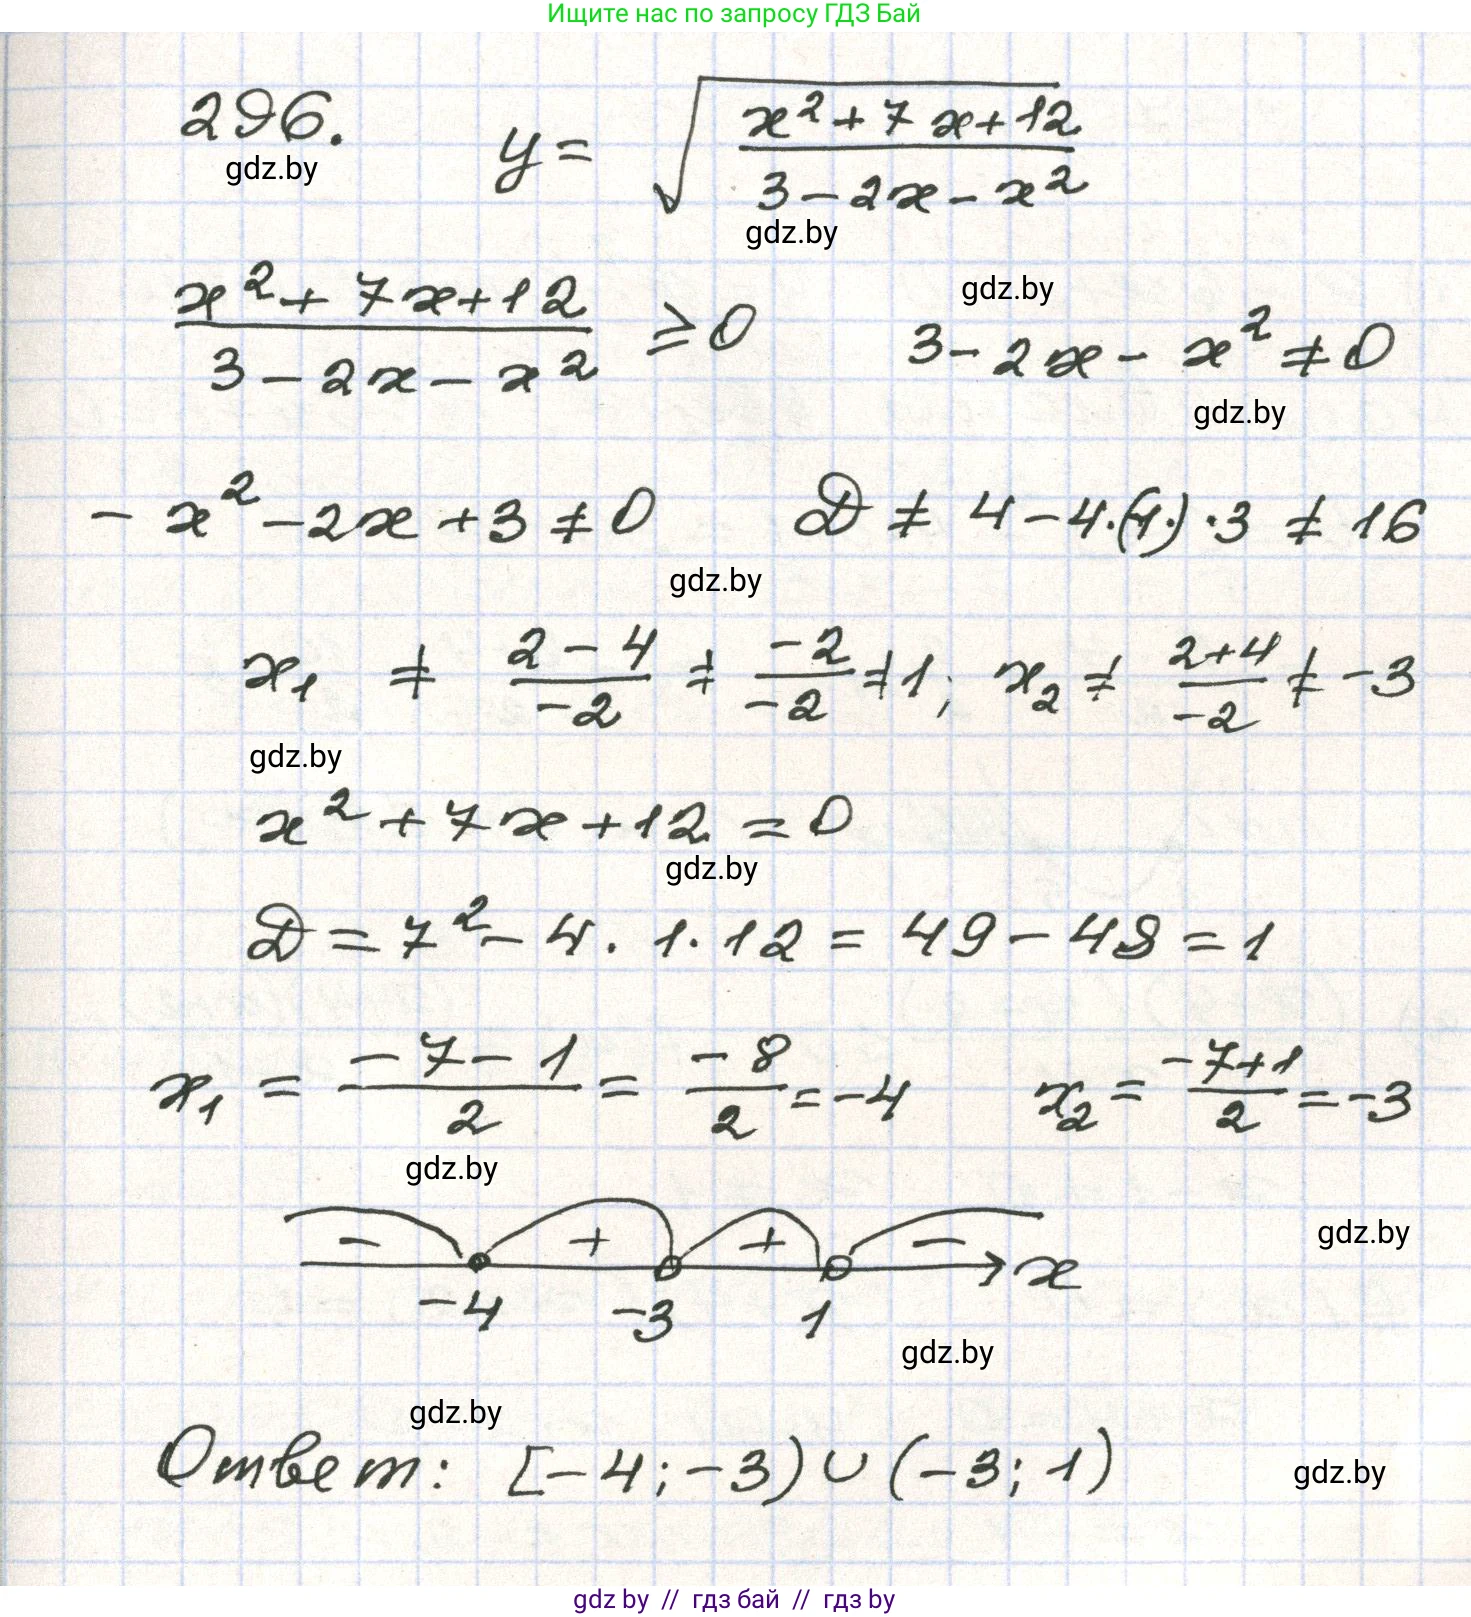 Ищите нас по запросу ГДЗ Бай
296. y = √((x² + 7x + 12)/(3 - 2x - x²))
gdz.by
gdz.by
(x² + 7x + 12)/(3 - 2x - x²) ≥ 0 3 - 2x - x² ≠ 0
gdz.by
gdz.by
- x² - 2x + 3 ≠ 0 D ≠ 4 - 4·(-1)·3 ≠ 16
gdz.by
x₁ ≠ (2 - 4)/(-2) ≠ (-2)/(-2) ≠ 1; x₂ ≠ (2+4)/(-2) ≠ -3
gdz.by
x² + 7x + 12 = 0
gdz.by
D = 7² - 4 · 1 · 12 = 49 - 48 = 1
x₁ = (-7 - 1)/2 = (-8)/2 = -4 x₂ = (-7+1)/2 = -3
gdz.by
- + + - x
gdz.by
-4 -3 1
gdz.by
gdz.by
Ответ: [-4; -3) ∪ (-3; 1)
gdz.by
gdz by // гдз бай // гдз by